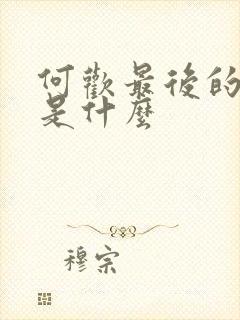 何歡最後的
是什麼
穆宗